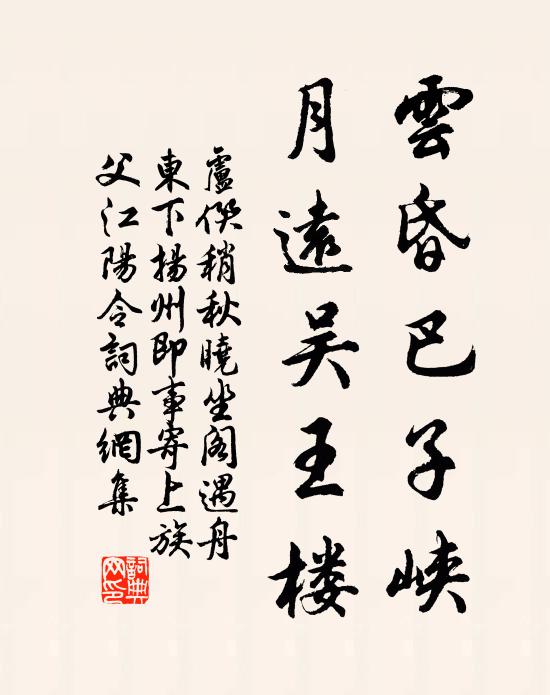 雲昏巴子峽
月遠吳王樓
盧僎稍秋曉坐閣遇舟
東下揚州即事寄上族
父江陽令詞典網集
詞典網印